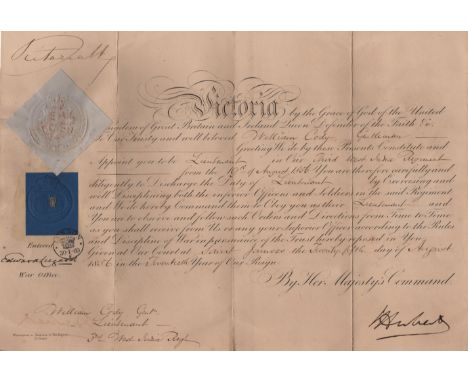 Victoria R
Victoria by the Grace of God of the United
Kingdom of Great Britain and Ireland Queen Defender of the Faith &c.
To Our Trusty and well beloved William Cody Gentleman
Greeting We do by these Presents Constitute and
Appoint you to be Lieutenant in Our Third West India Regiment
from the of August 1856 You are therefore carefully and
diligently to Discharge the Duty of Lieutenant by Exercising and
well Disciplining both the inferior Officers and Soldiers in the said Regiment
and We do hereby Command them to Obey you as their Lieutenant and
You are to observe and follow such Orders and Directions from Time to Time
as you shall receive from Us or any your Superior Officer according to the Rules
and Discipline of War in pursuance of the Trust hereby reposed in You
Given at Our Court at Saint James's the day of August
1856 in the Twentieth Year of Our Reign
Entered
War Office
By Her Majesty's Command.
William Cody Gent
Lieutenant
3rd West India Regt